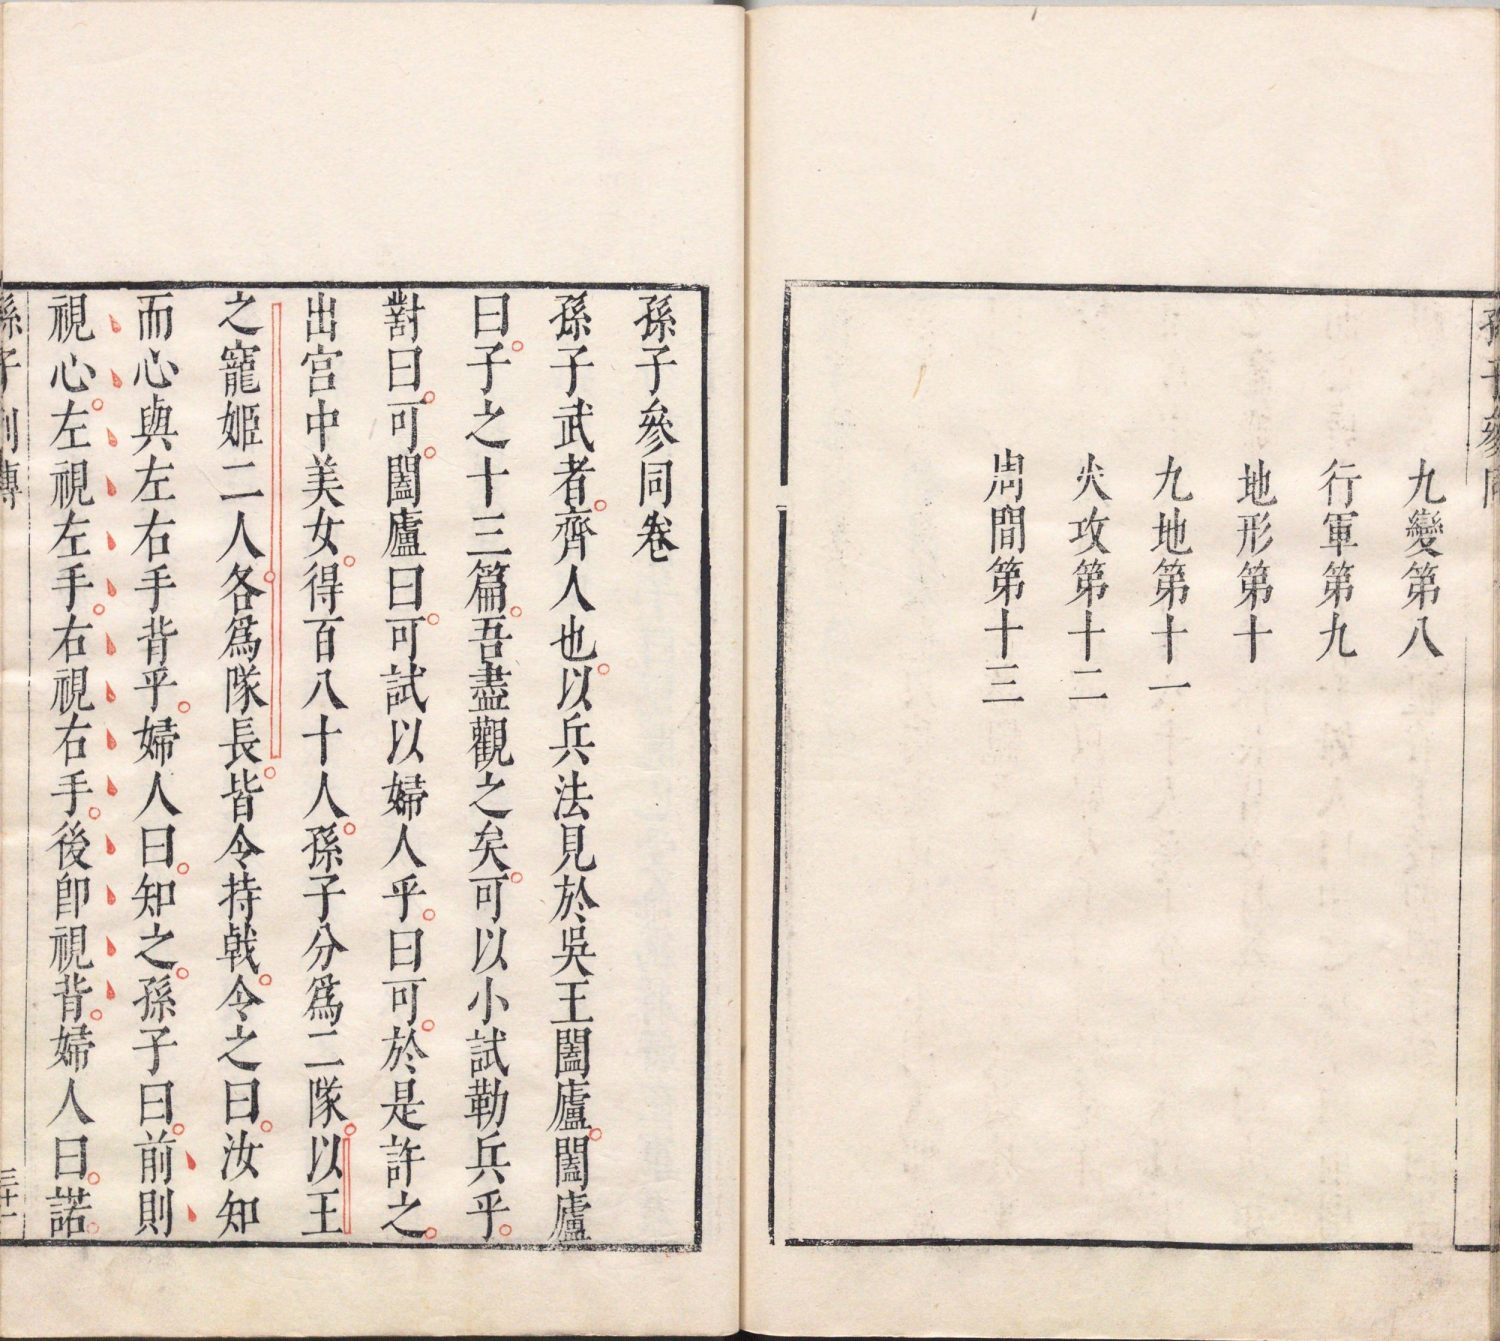 孫子參同
九變第八
行軍第九
地形第十
九地第十一
火攻第十二
用間第十三
孫子參同卷
孫子武者齊人也以兵法見於吳王闔廬闔廬
曰子之十三篇吾盡觀之矣可以小試勒兵乎
對曰可闔廬曰可試以婦人乎曰可於是許之
出宮中美女得百八十人孫子分爲二隊以王
之寵姬二人各爲隊長皆令持戟令之曰汝知
而心與左右手背乎婦人曰知之孫子曰前則
視心左視左手右視右手後卽視背婦人曰諾
孫子列傳